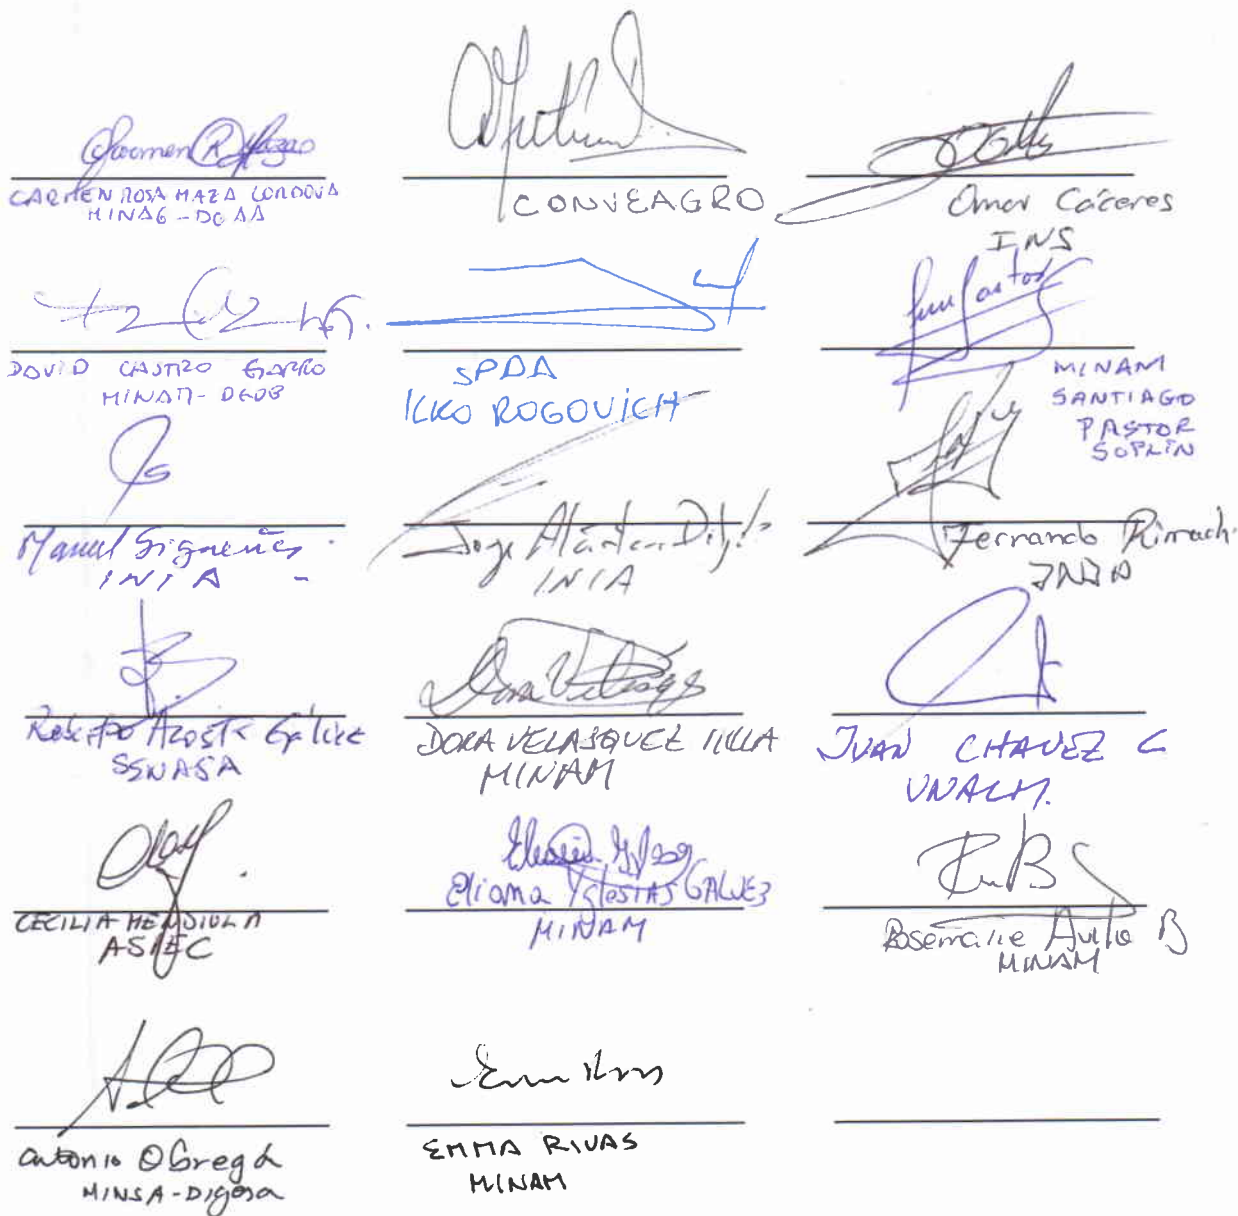 CARMEN ROSA MAZA CORDOVA
MINAG - DGAA
CONVEAGRO
Omar Cáceres
INS
DAVID CASTRO GARRO
MINAM - DGDB
SPDA
ILKO ROGOVICH
MINAM
SANTIAGO
PASTOR
SOPLIN
Manuel Sigueñas
INIA
Jorge Alcántara
INIA
Fernando Rimachi
INIA
Acosta
SENASA
DORA VELASQUEZ MILLA
MINAM
JUAN CHAVEZ C
UNALM.
CECILIA MENDIOLA
ASPEC
Eliana Yglesias GALVEZ
MINAM
Rosemarie Avila B
MINAM
Antonio Obregón
MINSA - Digesa
EMMA RIVAS
MINAM